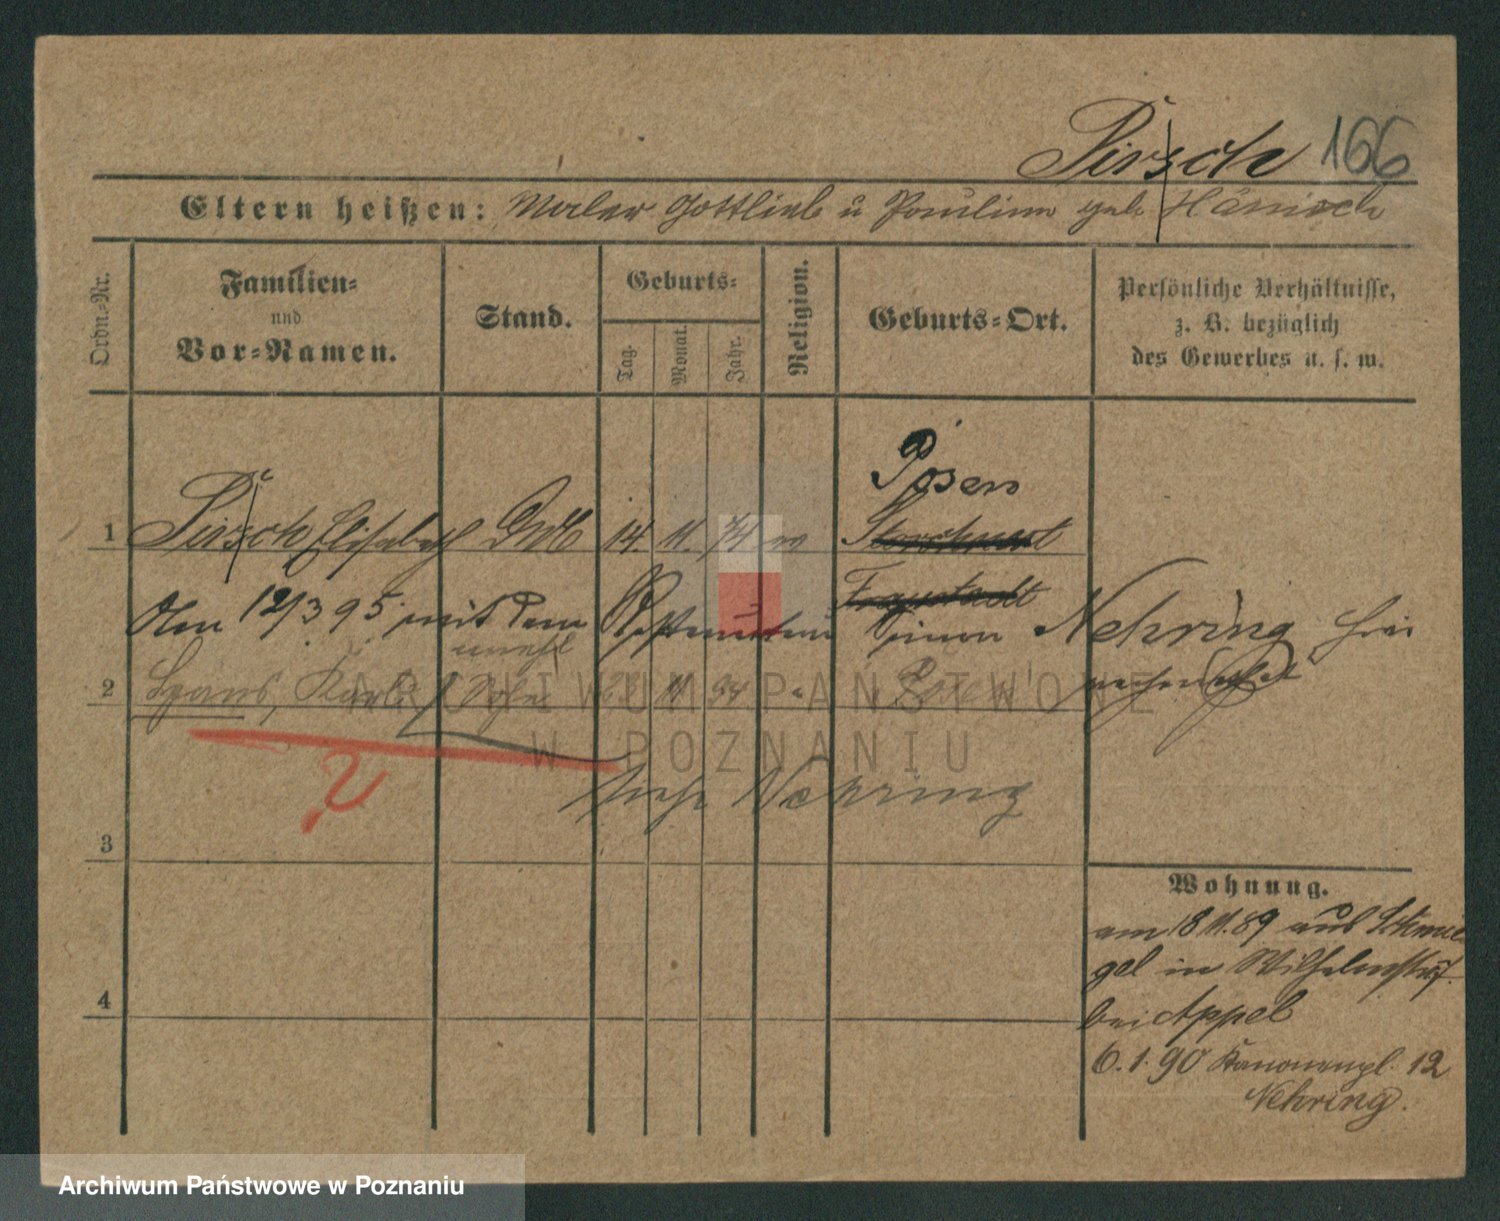 Pirsch 166
Eltern heißen: Maler Gottlieb u Pauline geb. Hänisch
Ordn.-Nr.
Familien-
und
Vor-Namen.
Stand.
Geburts-
Tag.
Monat.
Jahr.
Religion.
Geburts-Ort.
Persönliche Verhältnisse,
z. B. bezüglich
des Gewerbes u. s. w.
Posen
1 Pirsch Elisabeth 14. 11. 74 ev
Fraustadt
Am 12/3 95 mit dem Nehring hier
unehl
2 Sohn Posen
siehe Nehring
2
3
4
Wohnung.
am 18 11. 89 aus Schmie
gel in Wilhelmstr
bei Appel
6. 1. 90 Kanonenpl. 12
Nehring.
ARCHIWUM PAŃSTWOWE
W POZNANIU
Archiwum Państwowe w Poznaniu